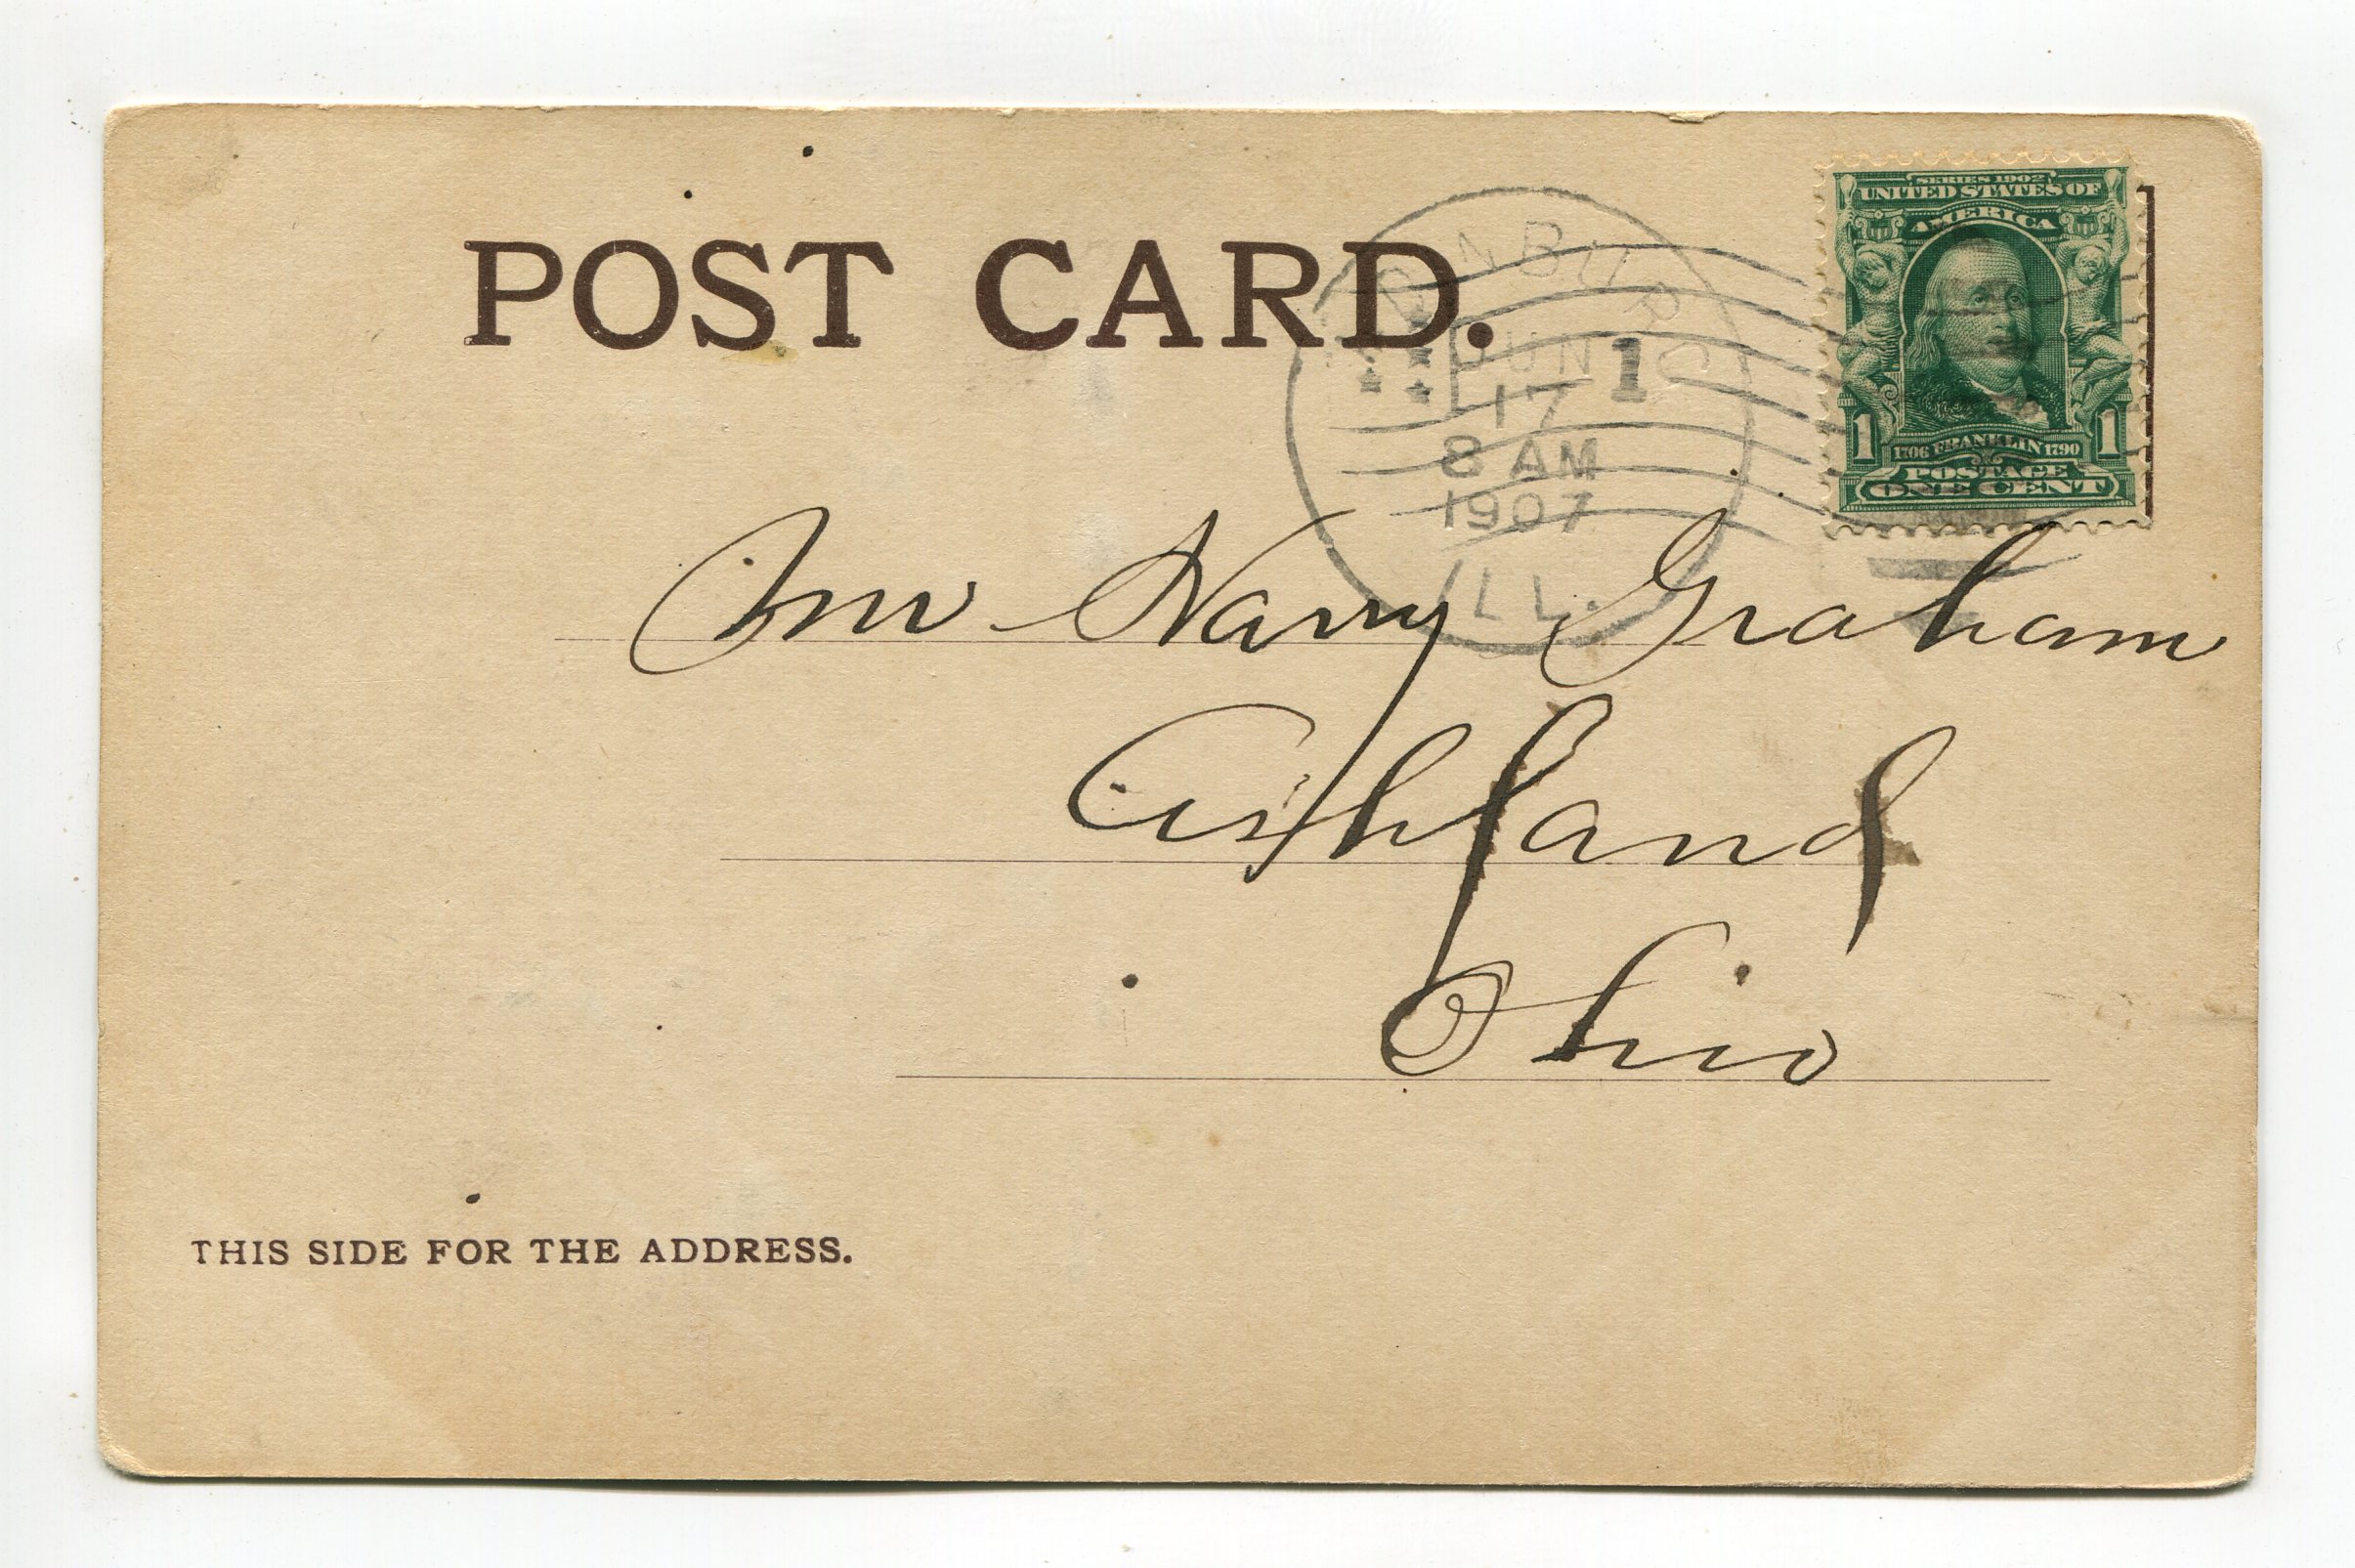 POST CARD.
SERIES 1902
UNITED STATES OF
AMERICA
1706 FRANKLIN 1790
1 1
POSTAGE
ONE CENT
JUN 1
17
8 AM
1907
ILL.
Mr Harry Graham
Ashland
Ohio
THIS SIDE FOR THE ADDRESS.